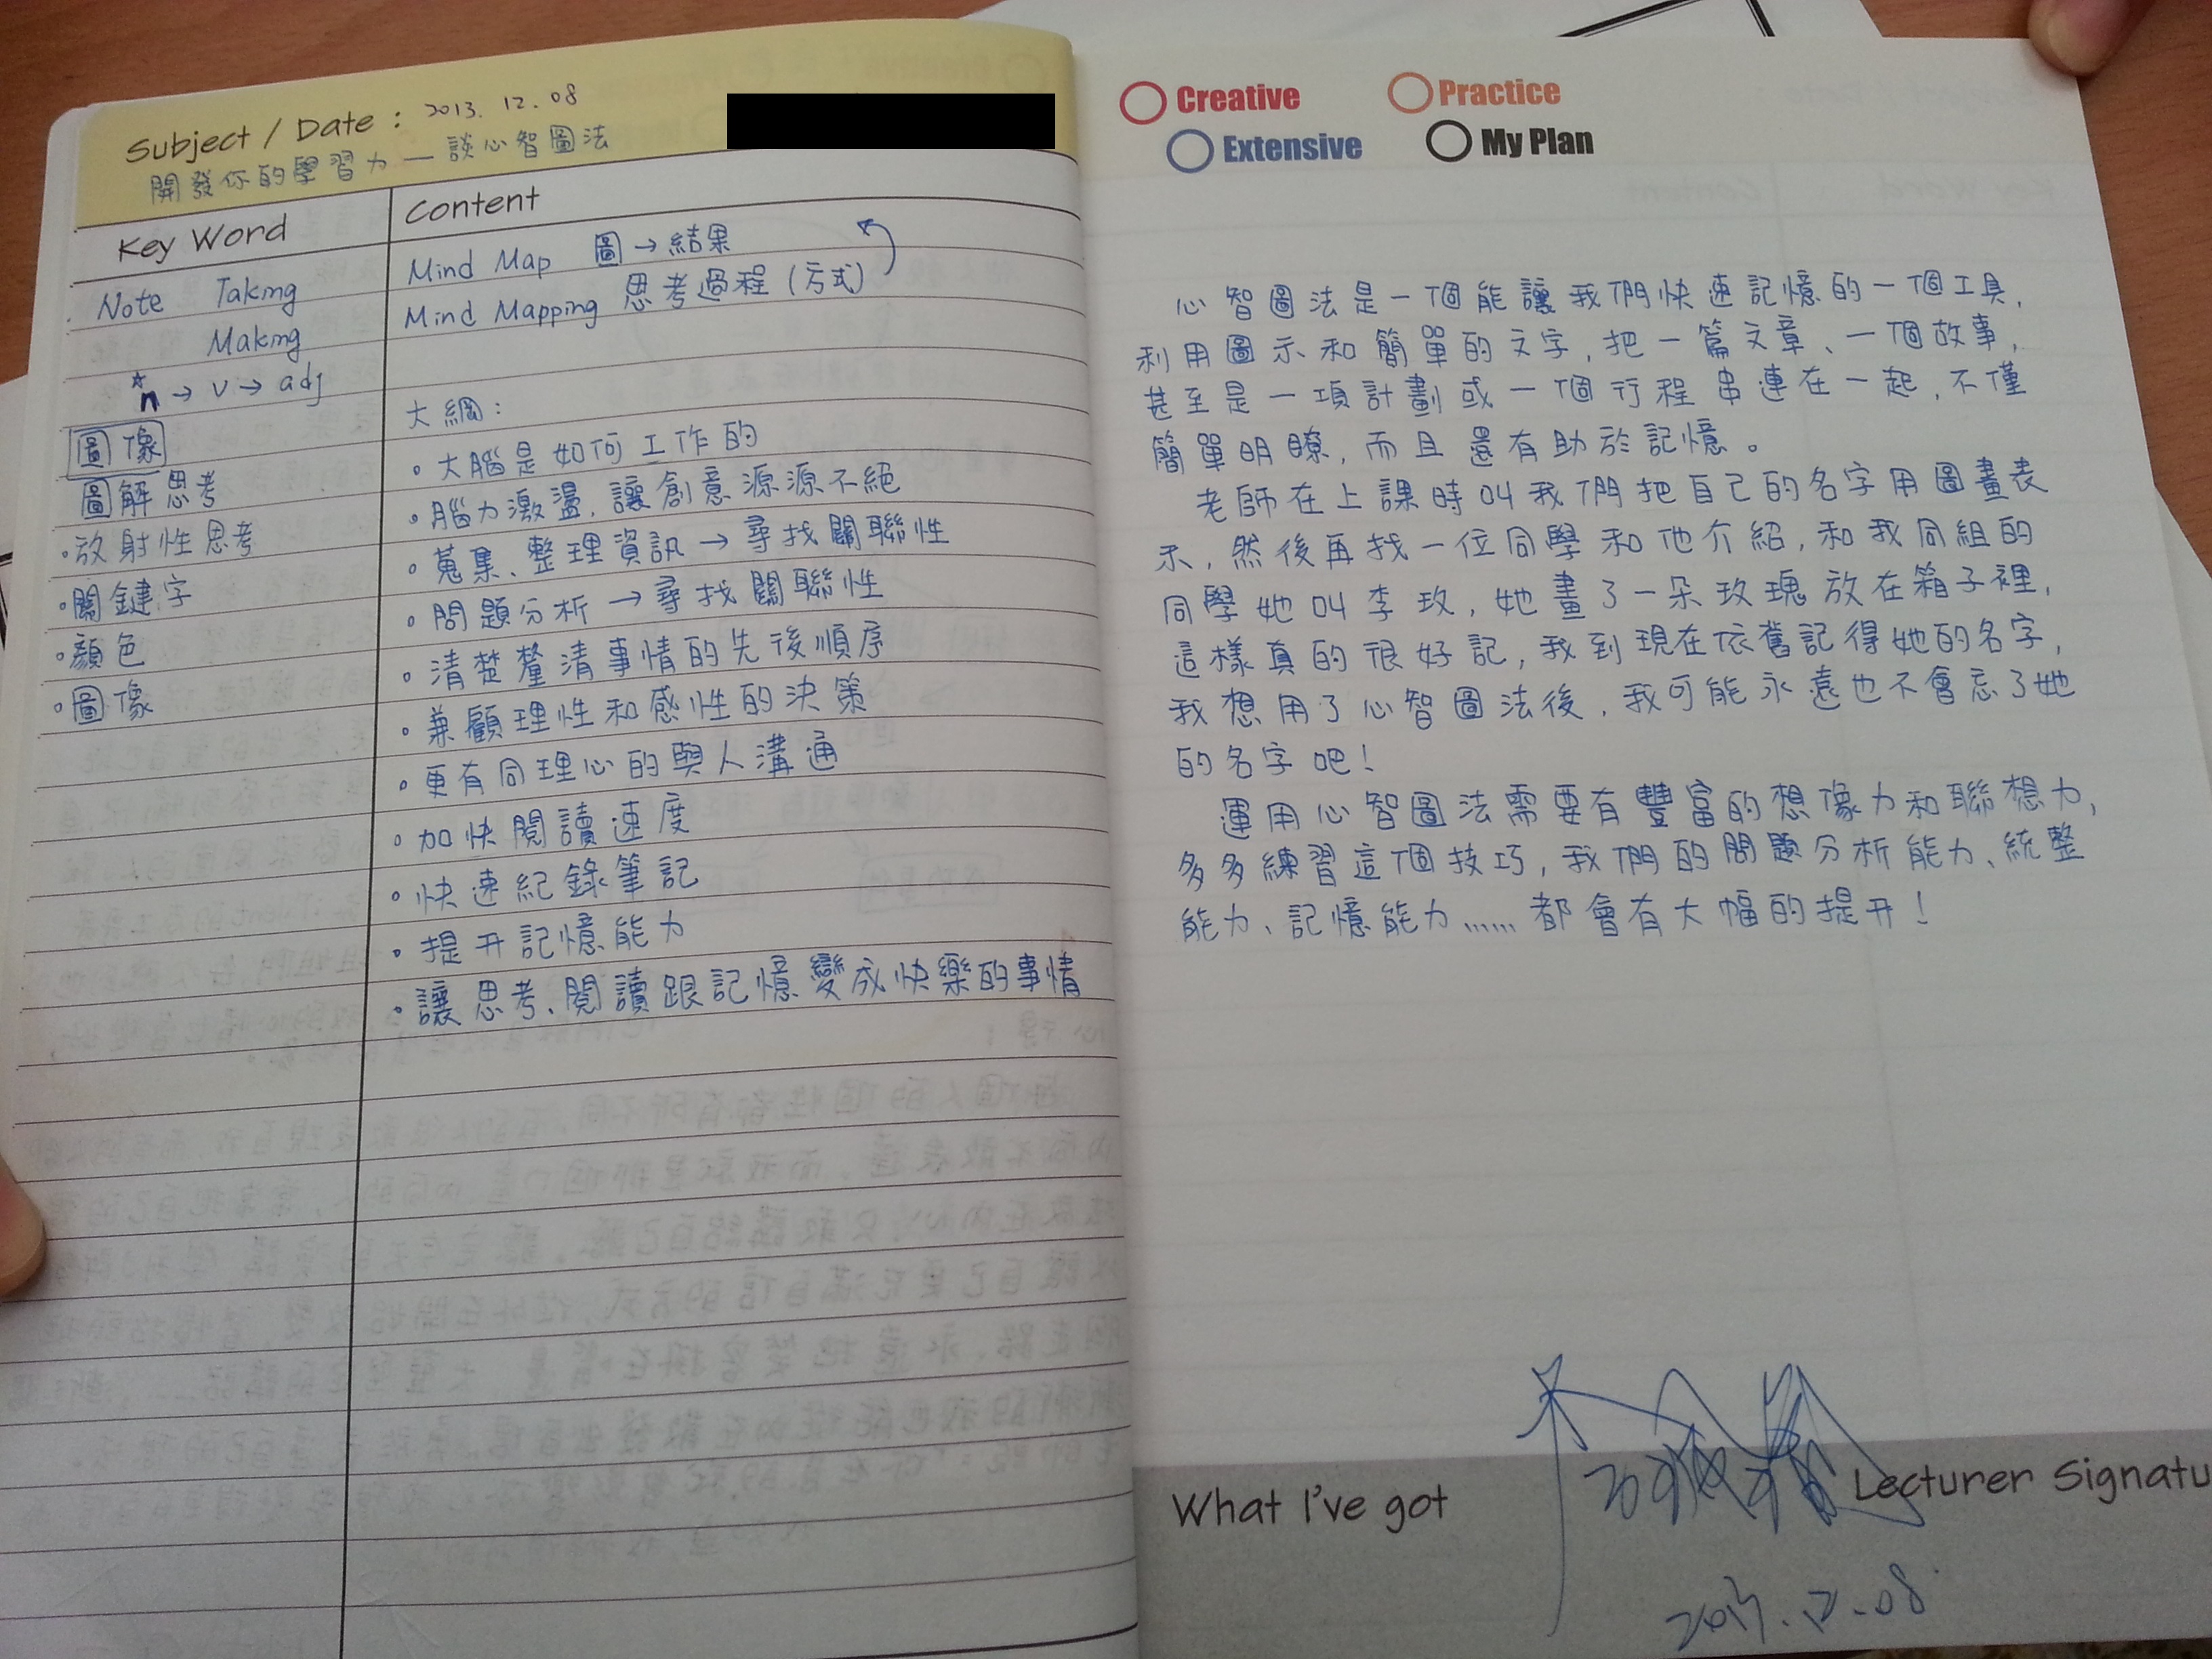 Subject / Date : 2013. 12. 08
開發你的學習力 — 談心智圖法
Key Word
Note Taking
Making
*n → v → adj
圖像
圖解思考
·放射性思考
·關鍵字
·顏色
·圖像
Content
Mind Map 圖 → 結果
Mind Mapping 思考過程 (方式)
大綱:
。大腦是如何工作的
。腦力激盪,讓創意源源不絕
。蒐集、整理資訊 → 尋找關聯性
。問題分析 → 尋找關聯性
。清楚釐清事情的先後順序
。兼顧理性和感性的決策
。更有同理心的與人溝通
。加快閱讀速度
。快速紀錄筆記
。提升記憶能力
。讓思考、閱讀跟記憶變成快樂的事情
Creative Practice
Extensive My Plan
心智圖法是一個能讓我們快速記憶的一個工具,
利用圖示和簡單的文字,把一篇文章、一個故事,
甚至是一項計劃或一個行程串連在一起,不僅
簡單明瞭,而且還有助於記憶。
老師在上課時叫我們把自己的名字用圖畫表
示,然後再找一位同學和他介紹,和我同組的
同學她叫李玫,她畫了一朵玫瑰放在箱子裡,
這樣真的很好記,我到現在依舊記得她的名字,
我想用了心智圖法後,我可能永遠也不會忘了她
的名字吧!
運用心智圖法需要有豐富的想像力和聯想力,
多多練習這個技巧,我們的問題分析能力、統整
能力、記憶能力……都會有大幅的提升!
What I've got
Lecturer Signatu
2013.12.08